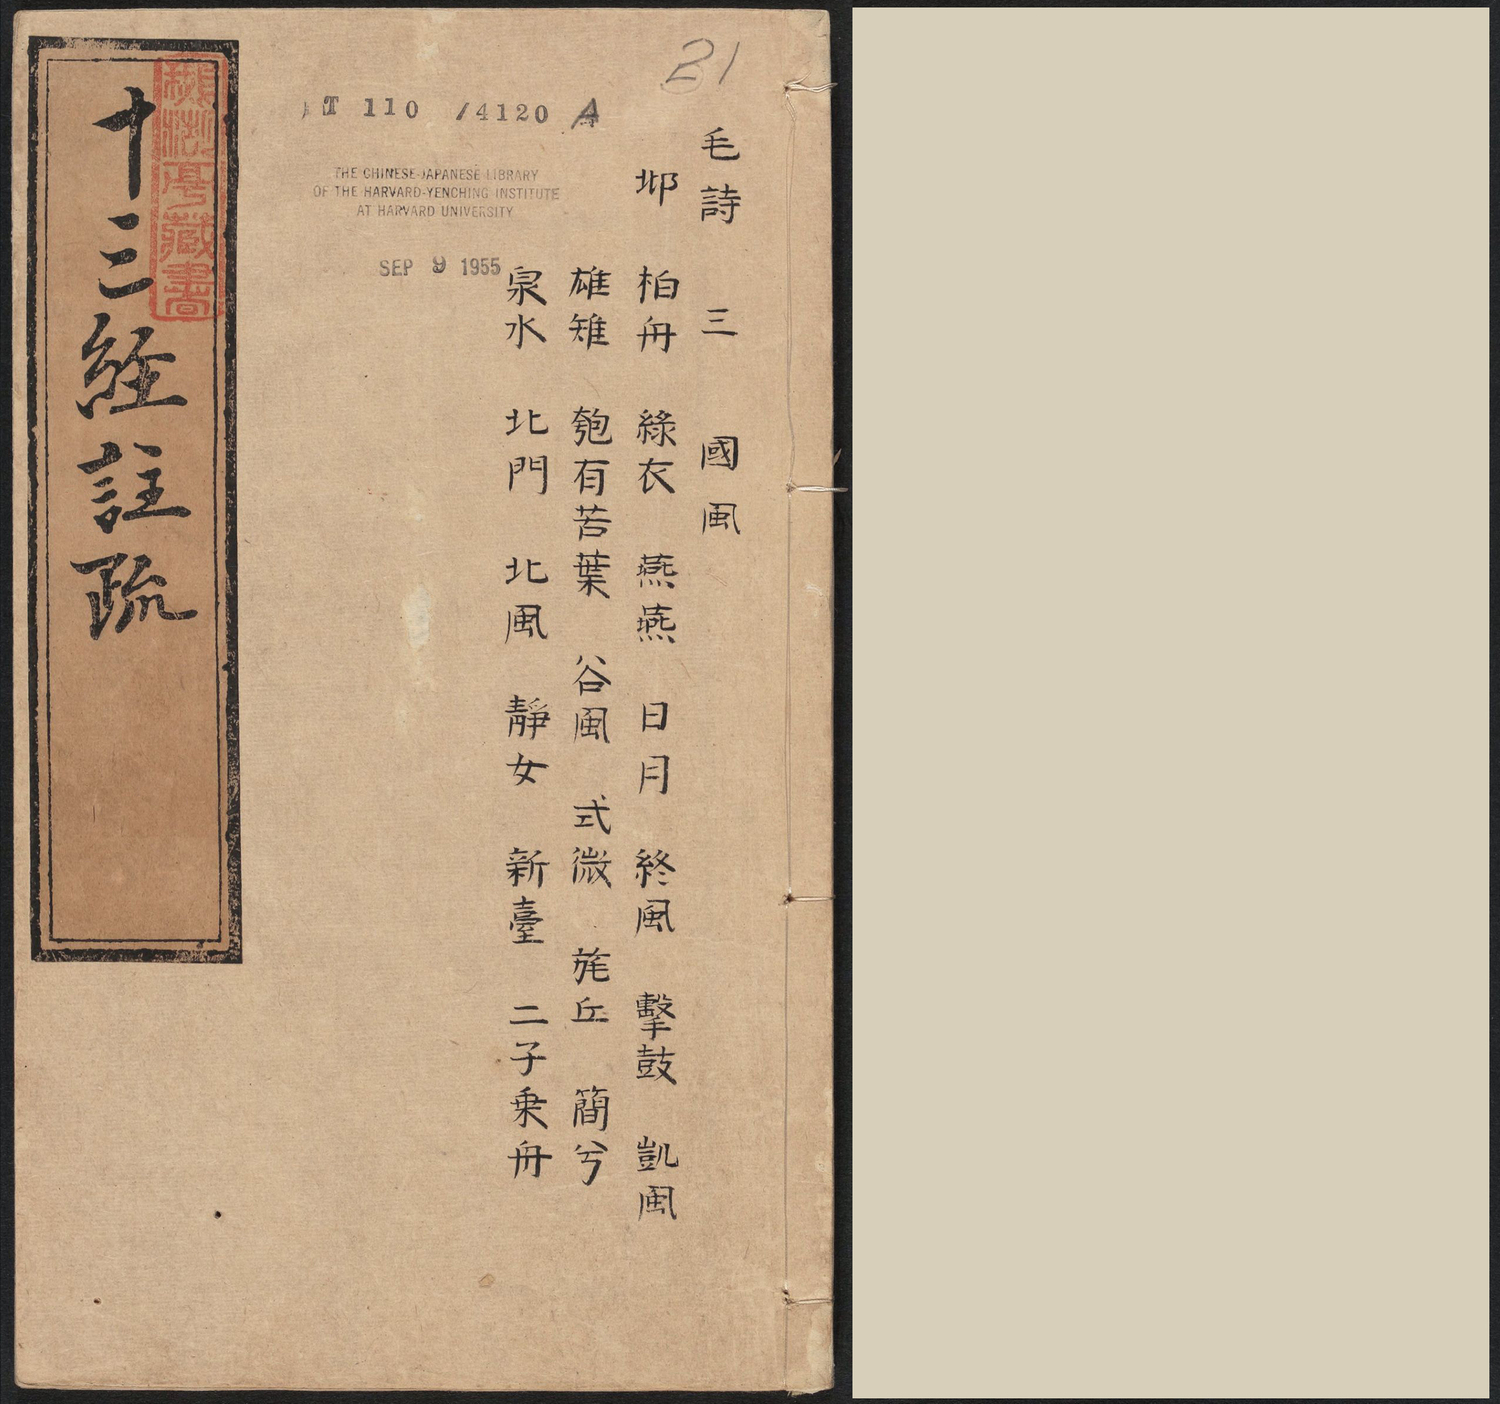 21
毛詩 三 國風
邶 柏舟 綠衣 燕燕 日月 終風 擊鼓 凱風
雄雉 匏有苦葉 谷風 式微 旄丘 簡兮
泉水 北門 北風 靜女 新臺 二子乗舟
T 110 /4120 A
THE CHINESE-JAPANESE LIBRARY
OF THE HARVARD-YENCHING INSTITUTE
AT HARVARD UNIVERSITY
SEP 9 1955
十三經註疏
藏書